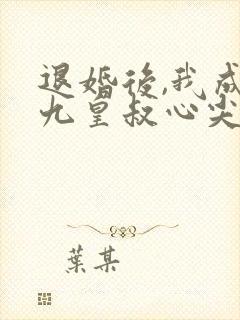 退婚後,我成
九皇叔心尖
葉某